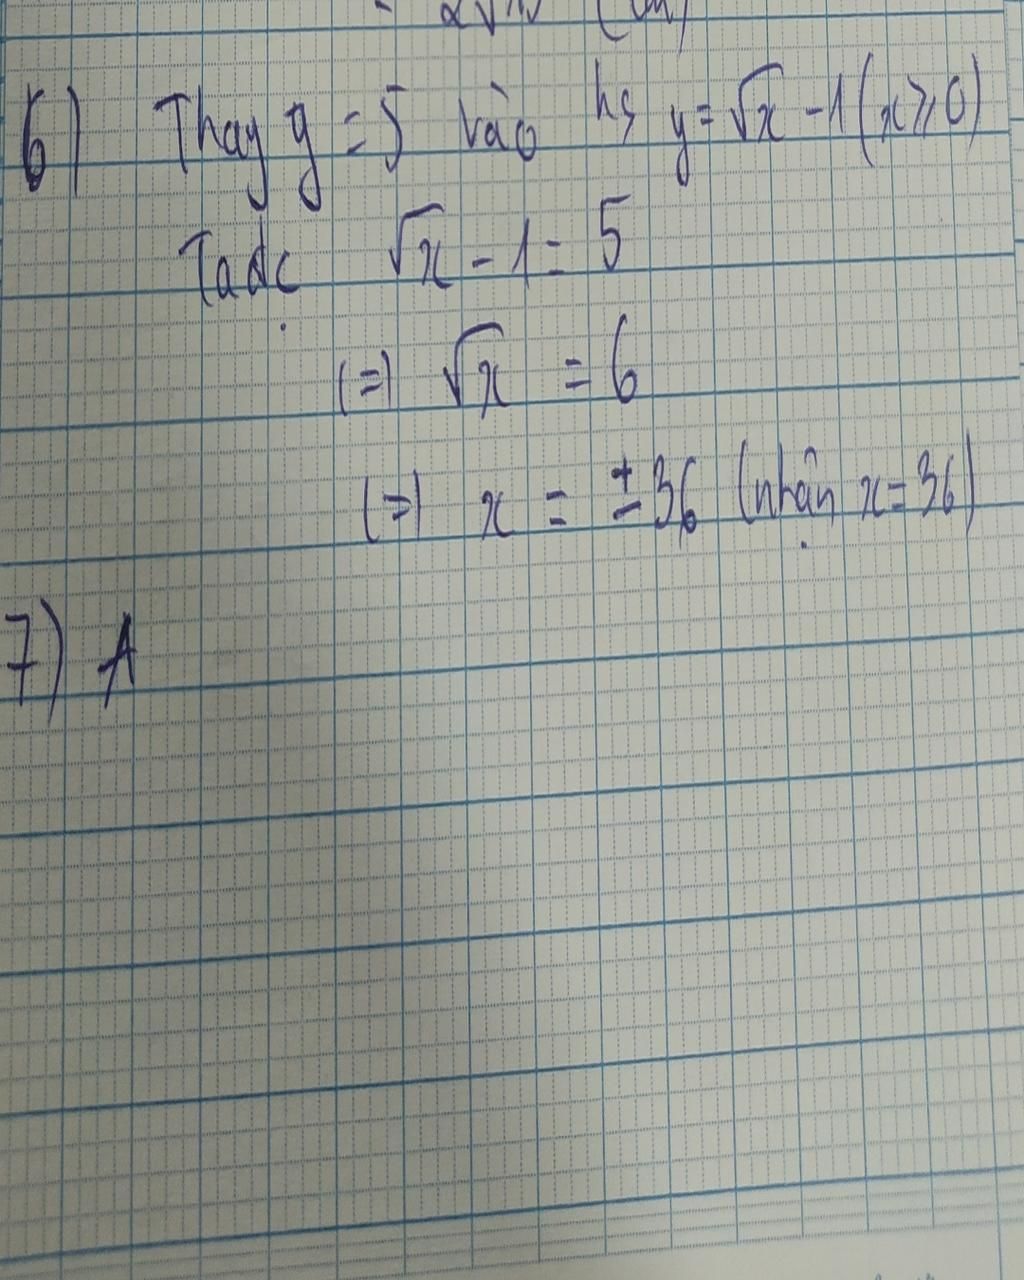 6) Thay y = 5 vào hs y = √x - 1 (x ⩾ 0)
Ta đc √x - 1 = 5
(=) √x = 6
(=) x = ± 36 (nhận x = 36)
7) A